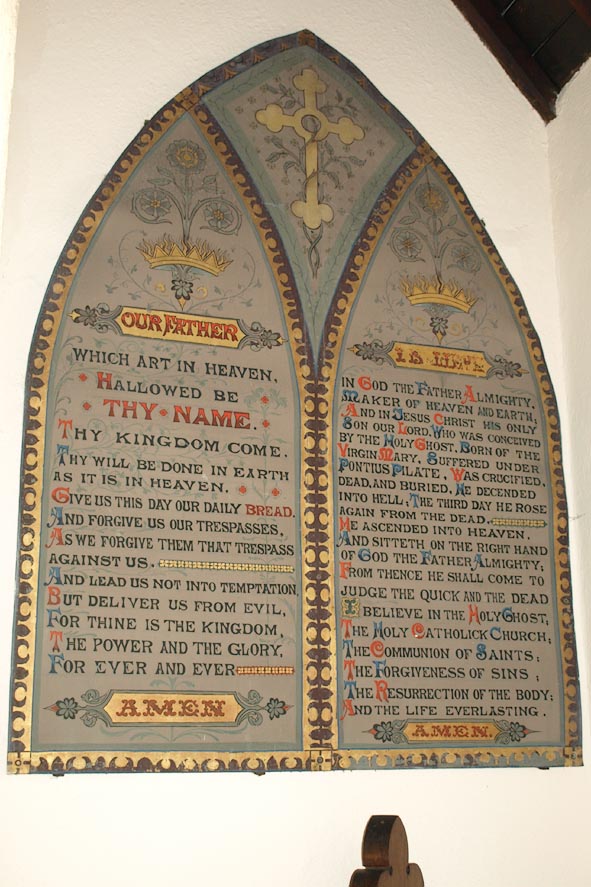 OUR FATHER
WHICH ART IN HEAVEN,
HALLOWED BE
THY NAME.
THY KINGDOM COME.
THY WILL BE DONE IN EARTH
AS IT IS IN HEAVEN.
GIVE US THIS DAY OUR DAILY BREAD.
AND FORGIVE US OUR TRESPASSES,
AS WE FORGIVE THEM THAT TRESPASS
AGAINST US.
AND LEAD US NOT INTO TEMPTATION,
BUT DELIVER US FROM EVIL,
FOR THINE IS THE KINGDOM,
THE POWER AND THE GLORY,
FOR EVER AND EVER
AMEN
IN GOD THE FATHER ALMIGHTY,
MAKER OF HEAVEN AND EARTH,
AND IN JESUS CHRIST HIS ONLY
SON OUR LORD, WHO WAS CONCEIVED
BY THE HOLY GHOST, BORN OF THE
VIRGIN MARY, SUFFERED UNDER
PONTIUS PILATE, WAS CRUCIFIED,
DEAD, AND BURIED, HE DECENDED
INTO HELL, THE THIRD DAY HE ROSE
AGAIN FROM THE DEAD.
HE ASCENDED INTO HEAVEN,
AND SITTETH ON THE RIGHT HAND
OF GOD THE FATHER ALMIGHTY;
FROM THENCE HE SHALL COME TO
JUDGE THE QUICK AND THE DEAD
I BELIEVE IN THE HOLY GHOST;
THE HOLY CATHOLICK CHURCH;
THE COMMUNION OF SAINTS;
THE FORGIVENESS OF SINS;
THE RESURRECTION OF THE BODY;
AND THE LIFE EVERLASTING.
AMEN.